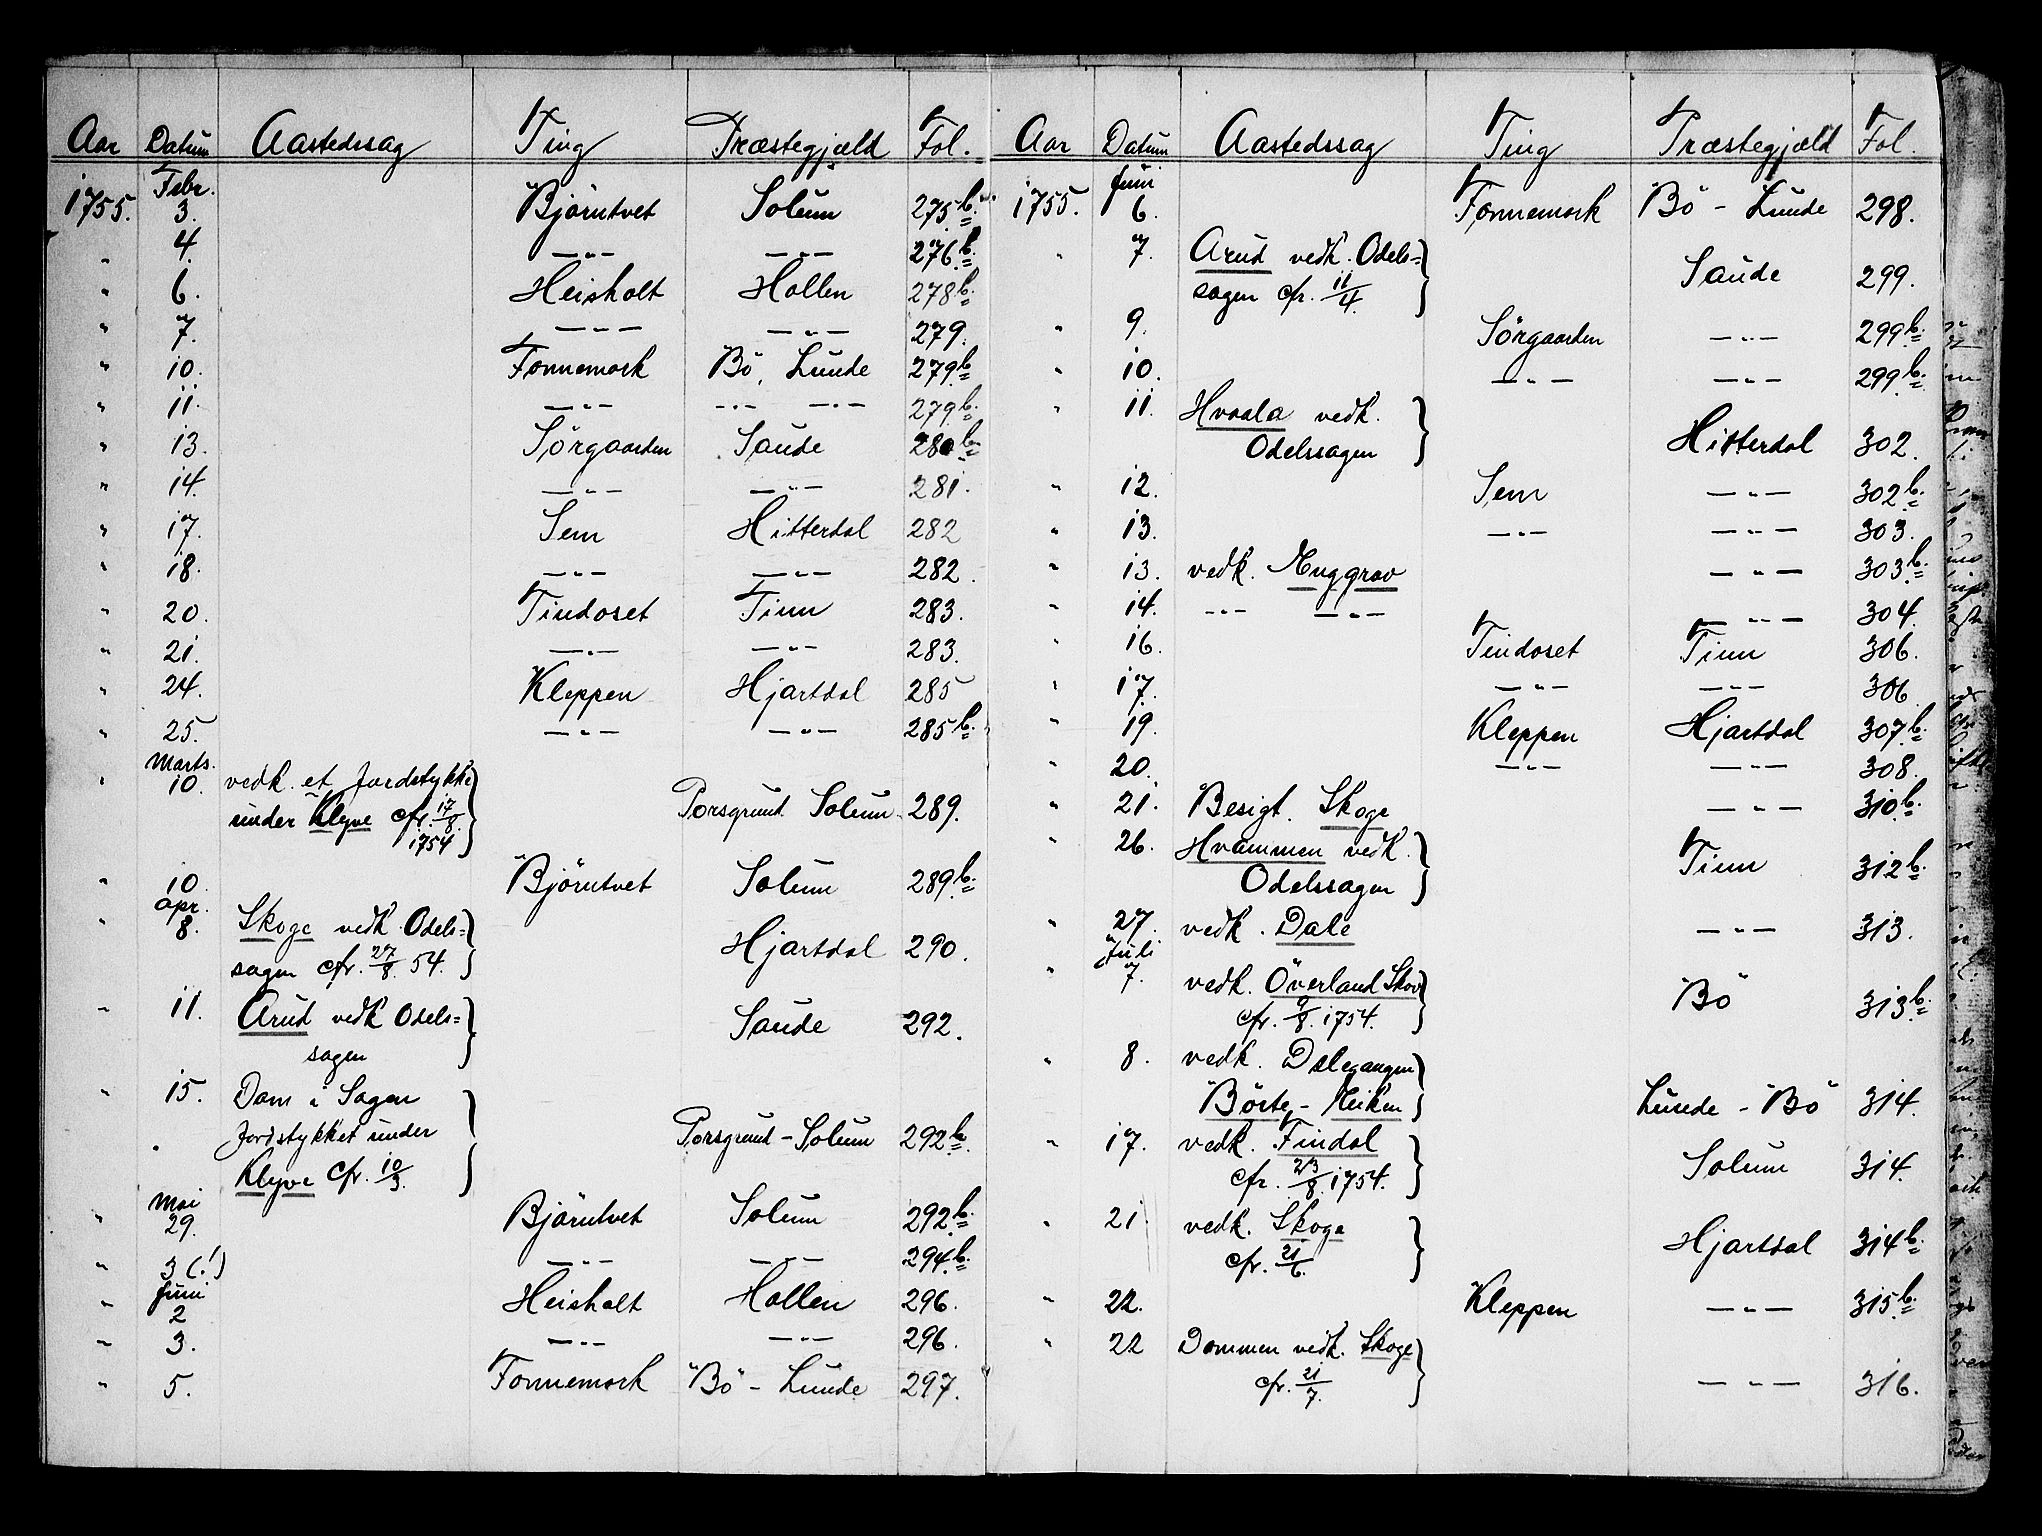 Aar Datum Aastedssag Ting Præstegjæld Fol.
1755. Febr. 3. Björntvet Solum 275 b.
" 4. —"— —"— 276 b.
" 6. Heisholt Hollen 278 b
" 7. —"— —"— 279.
" 10. Fonnemork Bö, Lunde 279 b
" 11. —"— —"— —"— 279 b.
" 13. Sörgaarden Saude 280 b.
" 14. —"— —"— 281.
" 17. Sem Hitterdal 282
" 18. —"— —"— 282.
" 20. Tindoset Tinn 283.
" 21. —"— —"— 283.
" 24. Kleppen Hjartdal 285
" 25. —"— —"— 285 b.
Marts.
" 10. vedk. et Jordstykke
under Klyve cfr. 17/8. Porsgrund Solum 289.
1754
" 10. Björntvet Solum 289 b.
Apr.
" 8. Skoge vedk. Odels=
sagen cfr. 27/8. 54. Hjartdal 290.
" 11. Arud vedk Odels=
sagen Saude 292.
" 15. Dom i Sagen
Jordstykket under Porsgrund - Solum 292 b.
Klyve cfr. 10/3.
Mai
" 29. Björntvet Solum 292 b.
" 3 (!) —"— —"— 294 b.
Juni
" 2 Heisholt Hollen 296.
" 3. —"— —"— 296.
" 5. Fonnemork Bö - Lunde 297.
Aar Datum Aastedssag Ting Præstegjæld Fol.
1755. Juni 6. Fonnemork Bö - Lunde 298.
" 7. Arud vedk. Odels=
sagen cfr. 11/4. Saude 299.
" 9. Sörgaarden —"— 299 b.
" 10. —"— —"— 299 b.
" 11. Hvaala vedk.
Odelssagen Hitterdal 302.
" 12. Sem —"— 302 b.
" 13. —"— —"— 303.
" 13. vedk. Muggrav —"— 303 b.
" 14. —"— —"— —"— 304.
" 16. Tindoset Tinn 306.
" 17. —"— —"— 306
" 19. Kleppen Hjartdal 307 b.
" 20. —"— —"— 308.
" 21. Besigt. Skoge —"— 310 b.
" 26. Hvammen vedk.
Odelssagen Tinn 312 b.
" 27. vedk. Dale —"— 313.
Juli
" 7. vedk. Överland Skov
cfr. 9/8. 1754. Bö 313 b.
" 8. vedk. Delegangen
Börte - Heiken Lunde - Bö 314.
" 17. vedk. Findal
cfr. 23/8. 1754. Solum 314.
" 21. vedk. Skoge
cfr. 21/6. Hjartdal 314 b.
" 22. Kleppen —"— 315 b.
" 22 Dommen vedk. Skoge
cfr. 21/7. —"— 316.